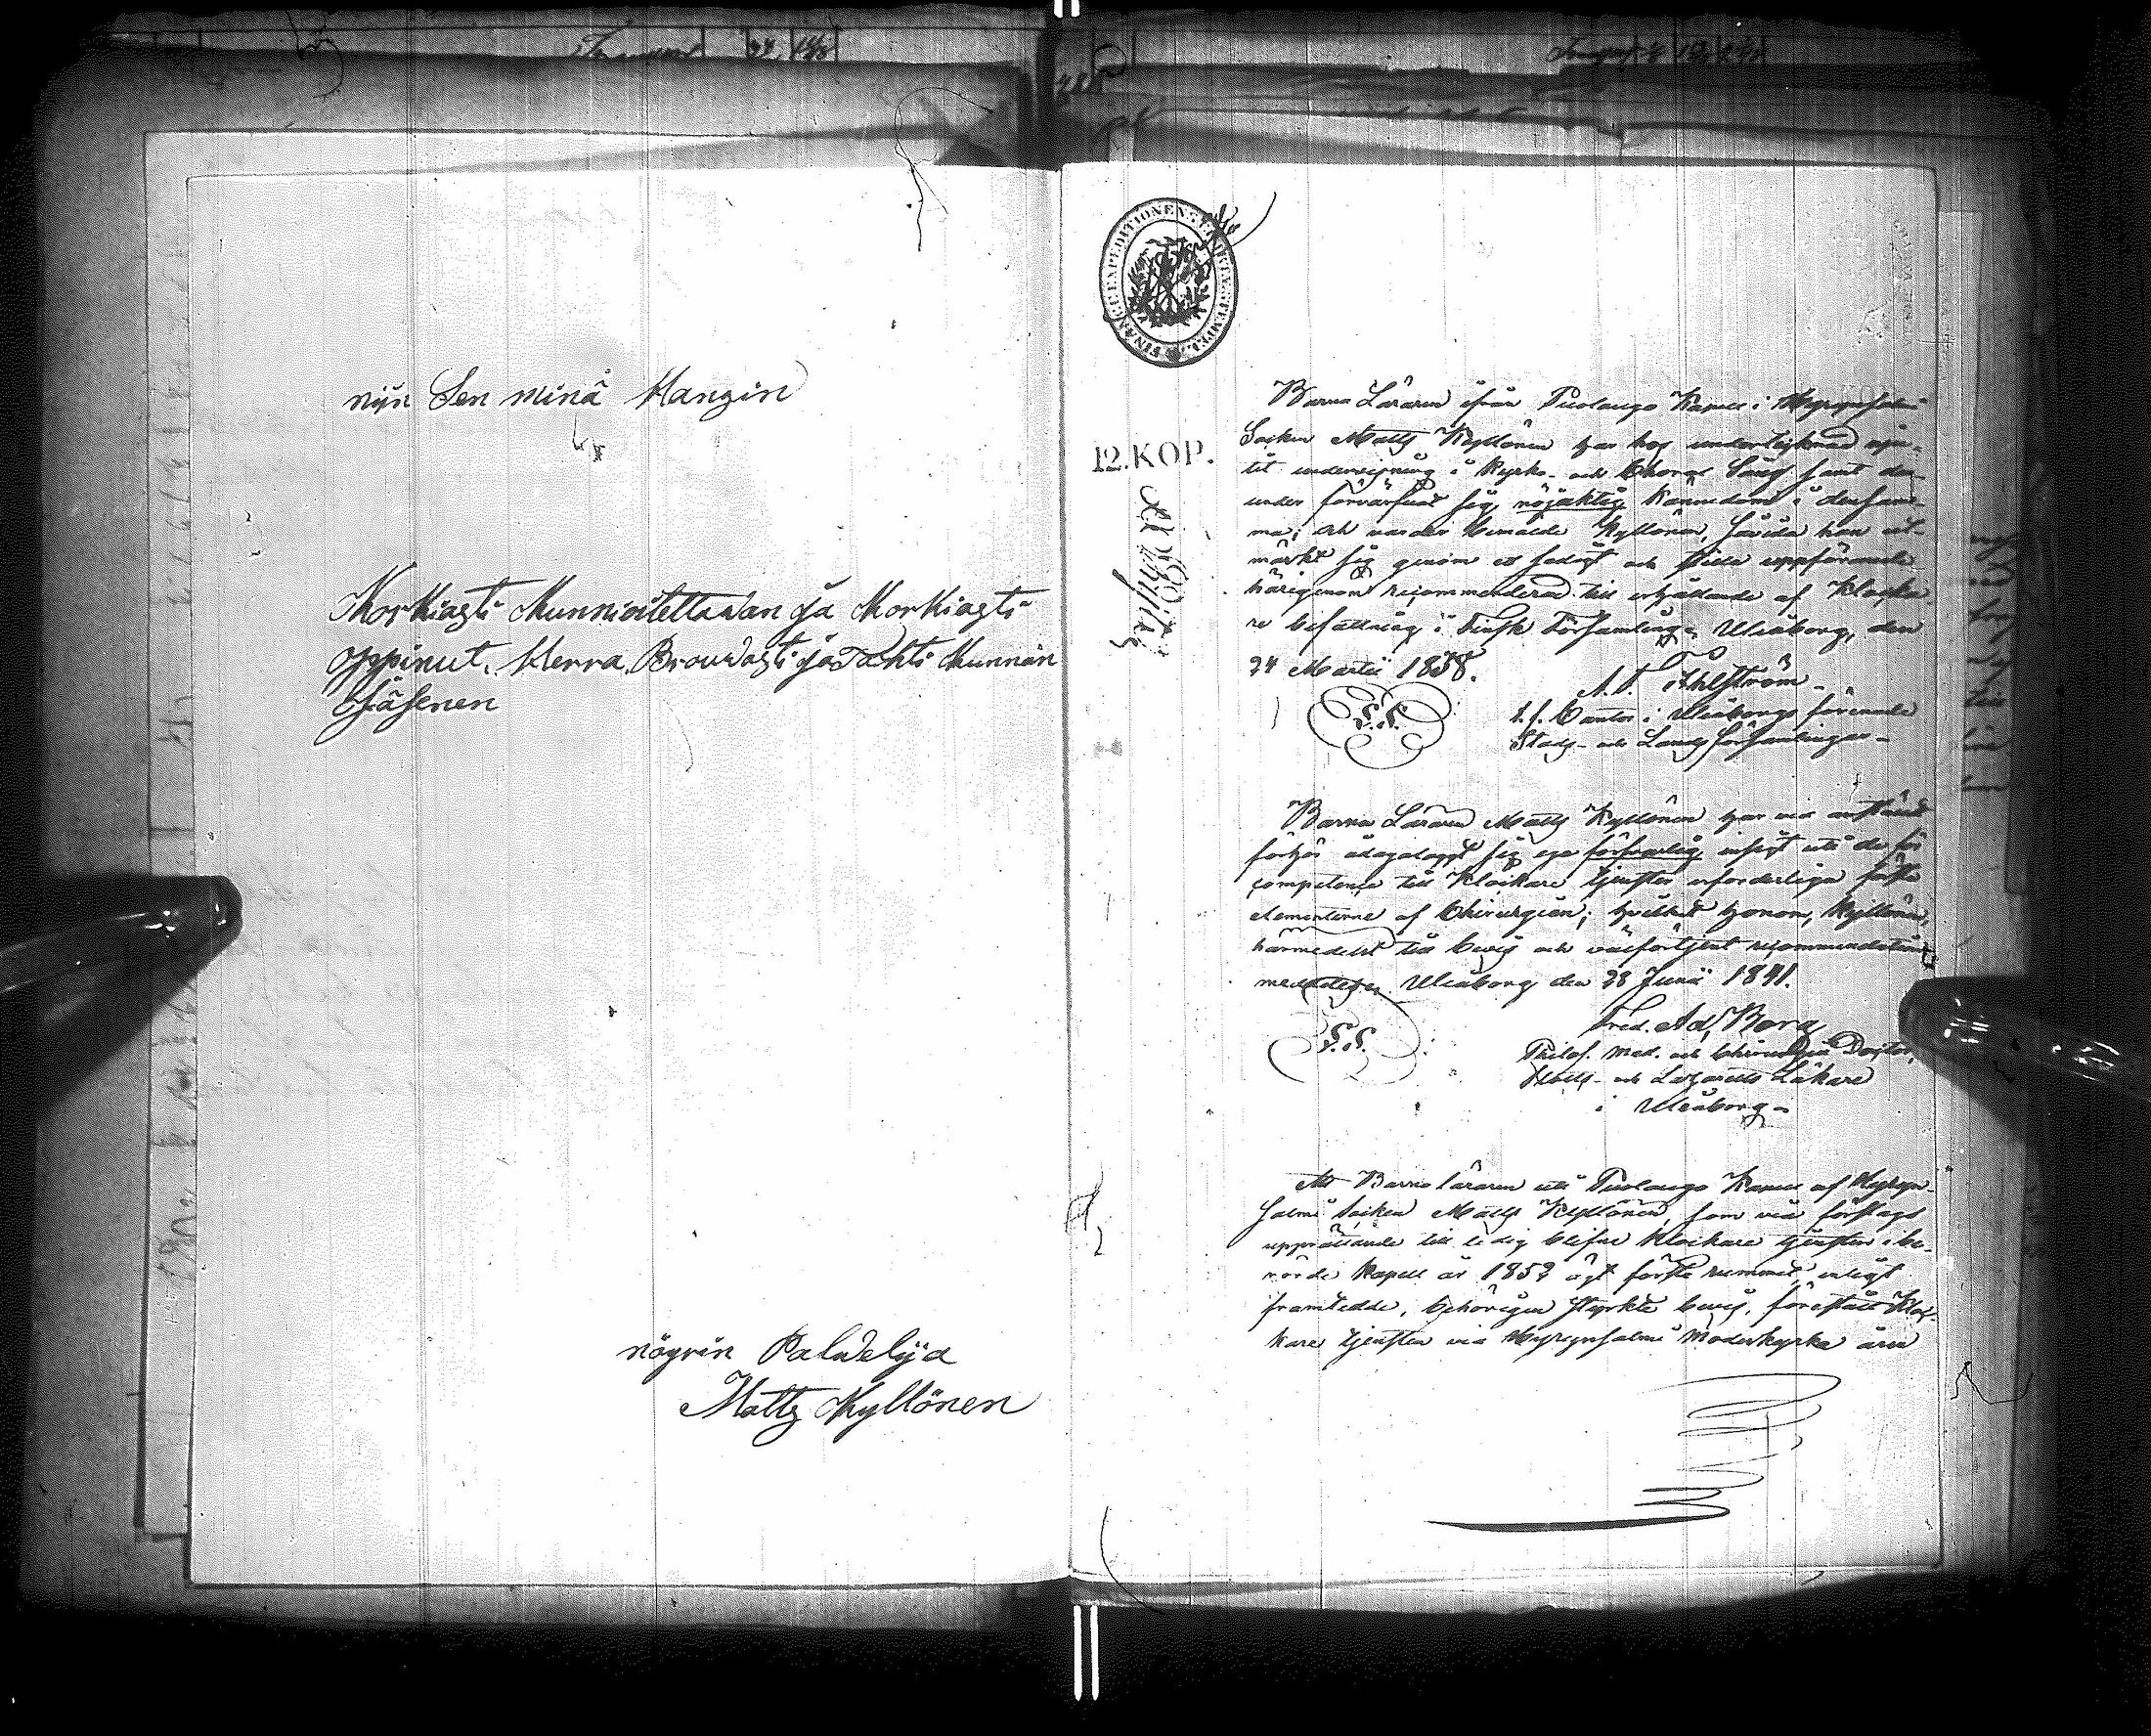 niin Sen minä Kanzin
Korkiasti Kunnioitettawan ja Korkiasti
oppinut, Herra, Prowasti ja Tähti Kunnan
Jäsenen
nöyrin Palwelija
Matts Kyllönen
FINANCE EXPEDITIONENS I FINLAND STEMPEL
12. KOP.
Barna Läraren ifrån Puolango Kapell i Hyrynsalmi
Socken Matts Kyllönen har hos undertecknad nju-
tit undervisning i Kyrko- och Choral Sång samt der-
under förvärfvat sig nöjaktig kännedom i densam-
ma; och varder bemälde Kyllönen, såvida han ut-
märkt sig genom ett sedigt och stilla uppförande
härigenom recommenderad till erhållande af Klocka-
re befattning i Finsk Församling. Uleåborg, den
24 Martii 1838.
A. F. Ahlström
L.S.
t.f. Cantor i Uleåborgs förenade
Stads- och Lands församlingar.
Barna Läraren Matts Kyllönen har vid anstäldt
förhör ådagalagt sig ega försvarlig insigt uti de för
competence till Klockare tjenster erforderliga första
elementerne af Chirurgien; hvilket honom, Kyllönen,
härmedelst till bevis och välförtjent recommendation
meddelas. Uleåborg den 28 Junii 1841.
Fred. Ad. Berg
L.S.
Philos. Med. och Chirurgiæ Doctor,
Stads- och Lazaretts Läkare
i Uleåborg.
Att Barna läraren uti Puolango Kapell af Hyryn-
salmi Socken Matts Kyllönen, som vid förslags
upprättande till ledig blifne Klockare tjensten i be-
rörde Kapell år 1852 ägt första rummet, enligt
framtedde, behörigen styrkte bevis, förestått Kloc-
kare tjensten vid Hyrynsalmi Moderkyrka åren